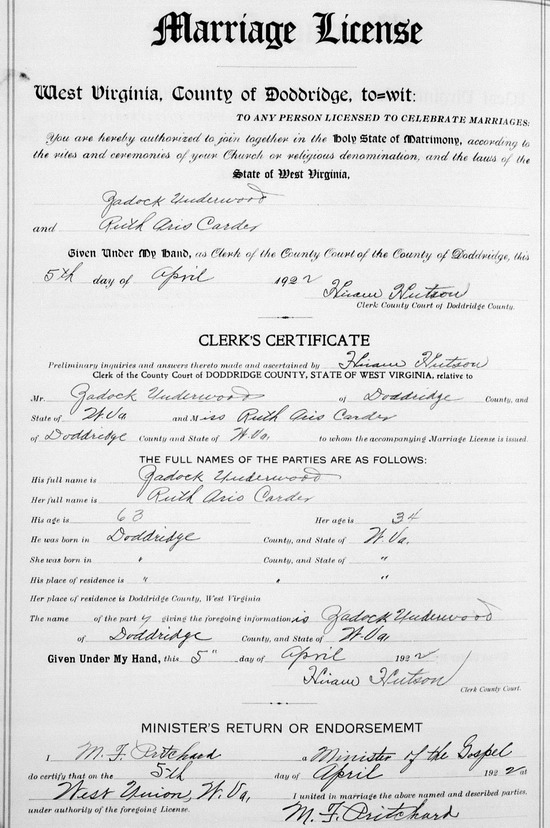 Marriage License
West Virginia, County of Doddridge, to=wit:
TO ANY PERSON LICENSED TO CELEBRATE MARRIAGES:
You are hereby authorized to join together in the Holy State of Matrimony, according to
the rites and ceremonies of your Church or religious denomination, and the laws of the
State of West Virginia,
Zadock Underwood
and Ruth Aris Carder
Given Under My Hand, as Clerk of the County Court of the County of Doddridge, this
5th day of April 1922
Hiram Hutson
Clerk County Court of Doddridge County.
CLERK'S CERTIFICATE
Preliminary inquiries and answers thereto made and ascertained by Hiram Hutson
Clerk of the County Court of DODDRIDGE COUNTY, STATE OF WEST VIRGINIA, relative to
Mr. Zadock Underwood of Doddridge County, and
State of W.Va and Miss Ruth Aris Carder
of Doddridge County and State of W.Va, to whom the accompanying Marriage License is issued.
THE FULL NAMES OF THE PARTIES ARE AS FOLLOWS:
His full name is Zadock Underwood
Her full name is Ruth Aris Carder
His age is 63 Her age is 34
He was born in Doddridge County, and State of W.Va.
She was born in " County, and State of "
His place of residence is " " "
Her place of residence is Doddridge County, West Virginia
The name of the party giving the foregoing information is Zadock Underwood
of Doddridge County, and State of W.Va,
Given Under My Hand, this 5" day of April 1922
Hiram Hutson
Clerk County Court.
MINISTER'S RETURN OR ENDORSEMEMT
I M. F. Pritchard a Minister of the Gospel
do certify that on the 5th day of April 1922 at
West Union, W.Va, I united in marriage the above named and described parties,
under authority of the foregoing License. M. F. Pritchard